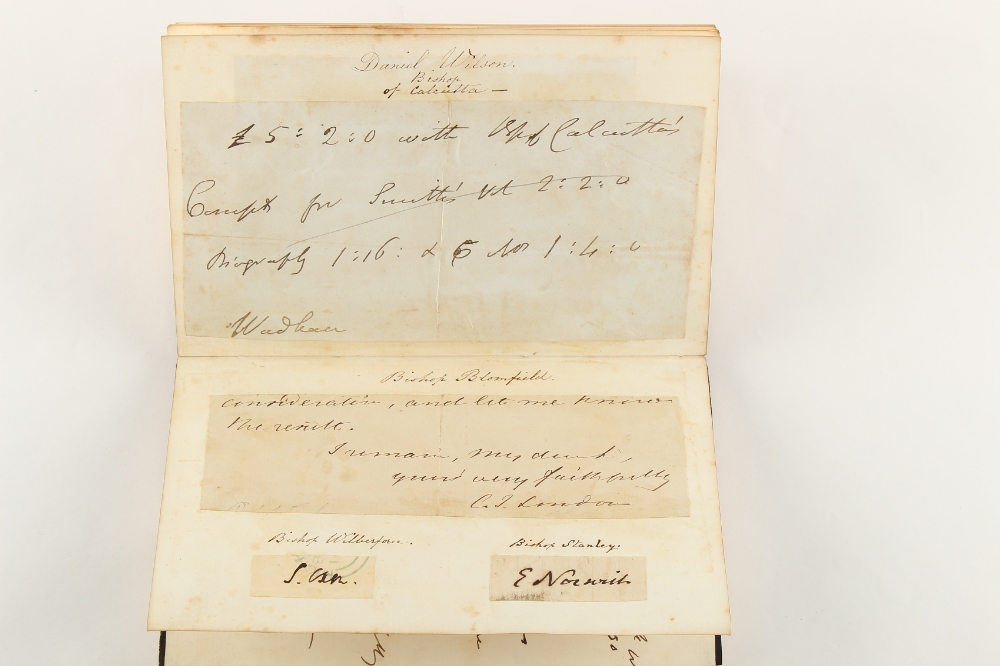 Daniel Wilson.
Bishop
of Calcutta —
£5 : 2 : 0 with Bp of Calcutta's
Compts for Smith's 2 : 2 : 0
Biography 1 : 16 : & 6 Nos 1 : 4 : 0
Bishop Blomfield.
consideration, and let me know
the result.
I remain, my dear
yours very faithfully
C. J. London
Bishop Wilberforce.
Bishop Stanley.
S. Oxon.
E Norwich